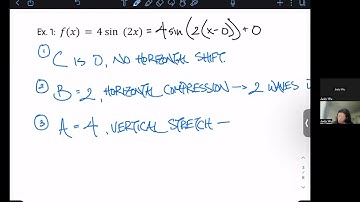 Ex. 1: f(x) = 4 sin (2x) = 4 sin(2(x-0)) + 0
① C IS 0, NO HORIZONTAL SHIFT.
② B = 2, HORIZONTAL COMPRESSION → 2 WAVES
③ A = 4, VERTICAL STRETCH —